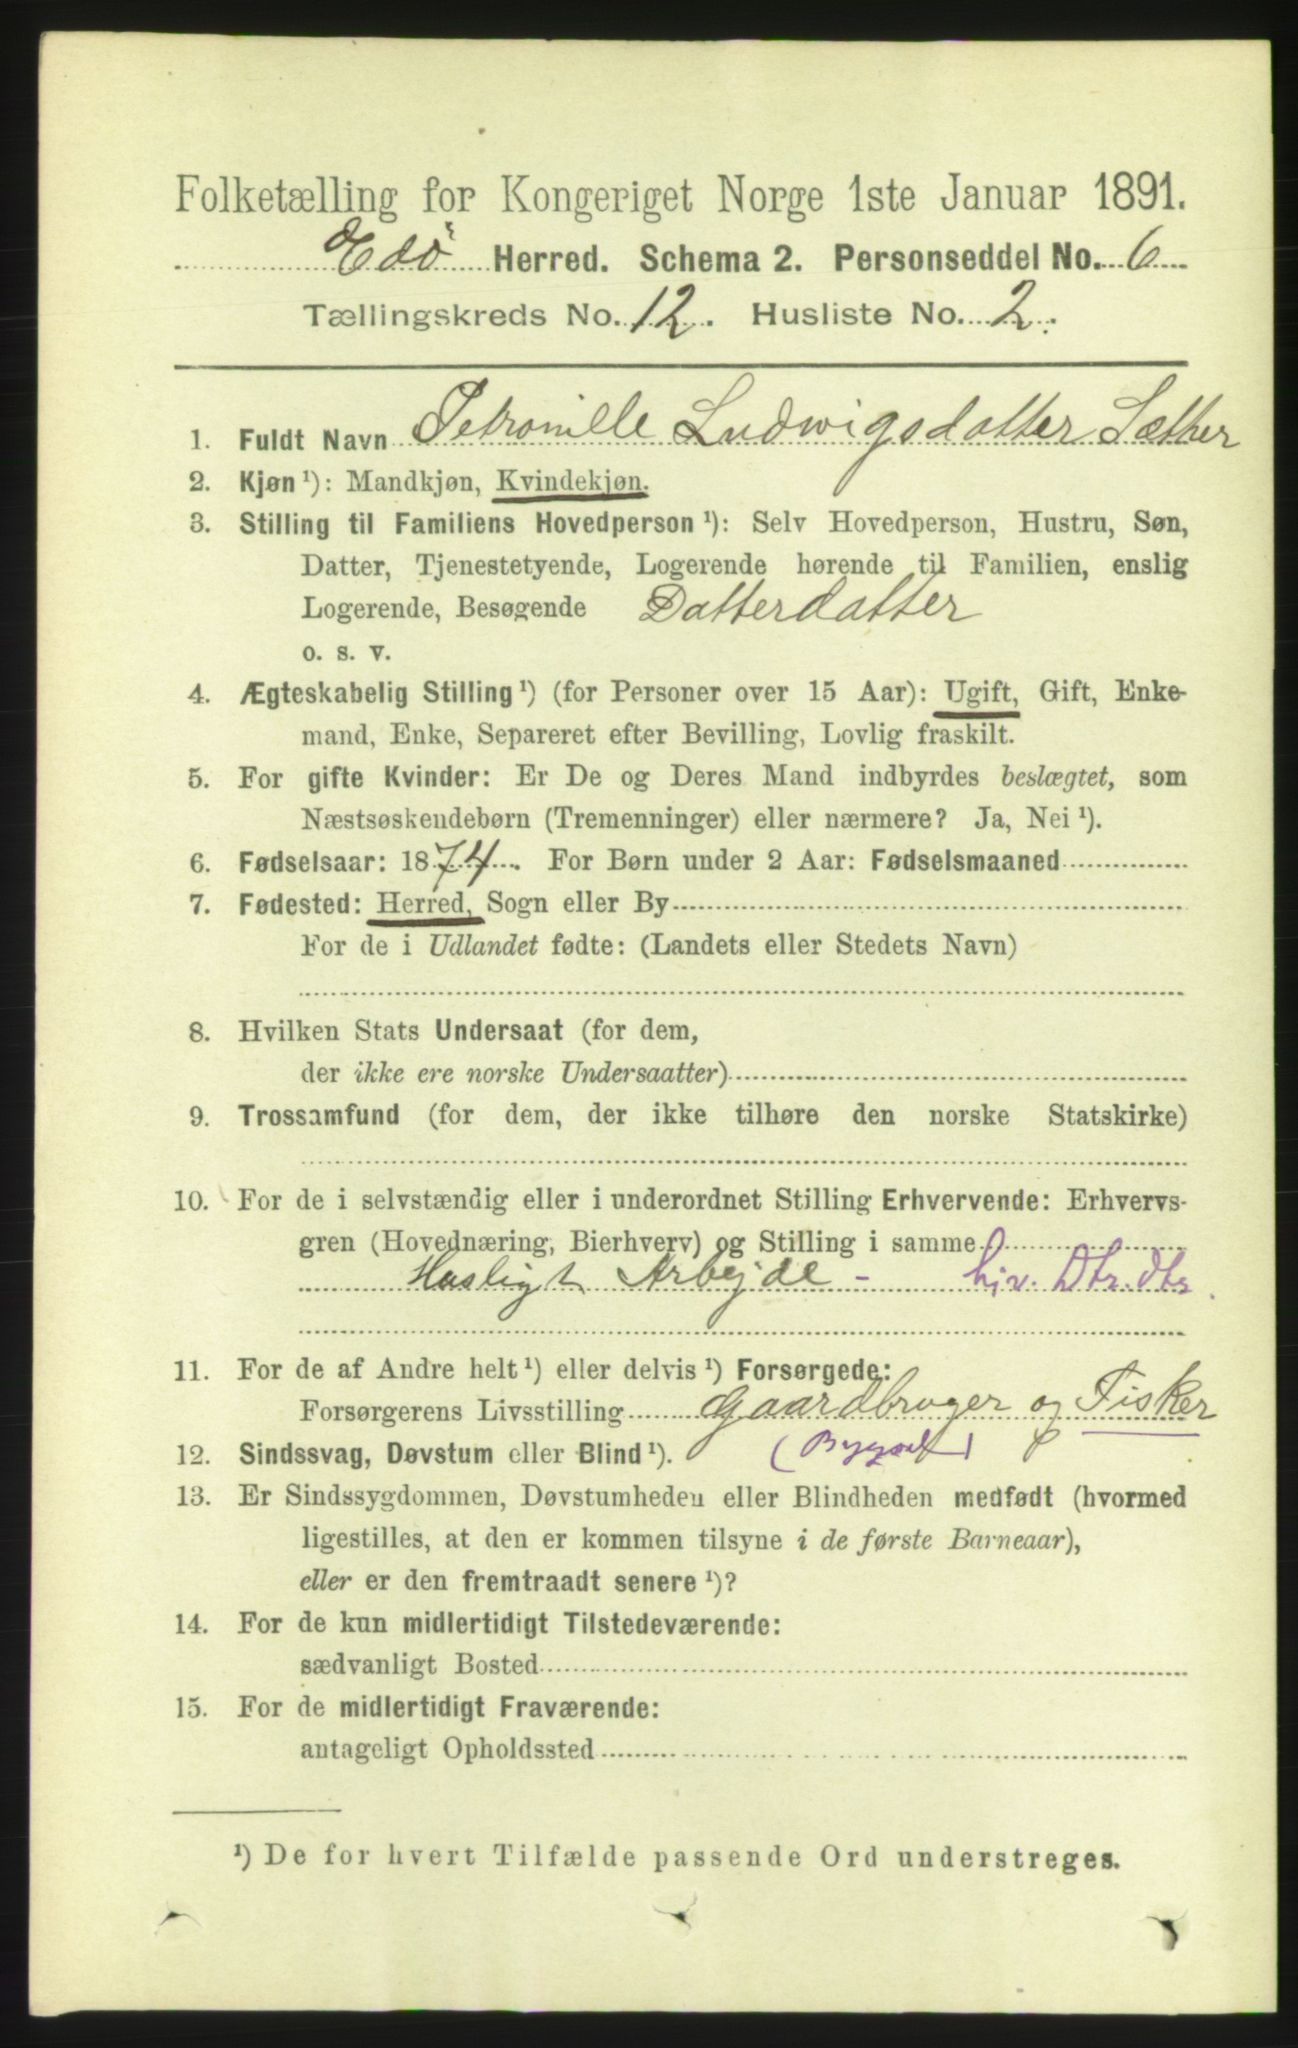 Folketælling for Kongeriget Norge 1ste Januar 1891.
Edö Herred. Schema 2. Personseddel No. 6
Tællingskreds No. 12. Husliste No. 2.
1. Fuldt Navn Petronille Ludwigsdatter Sæther
2. Kjøn ¹): Mandkjøn, Kvindekjøn.
3. Stilling til Familiens Hovedperson ¹): Selv Hovedperson, Hustru, Søn,
Datter, Tjenestetyende, Logerende hørende til Familien, enslig
Logerende, Besøgende Datterdatter
o. s. v.
4. Ægteskabelig Stilling ¹) (for Personer over 15 Aar): Ugift, Gift, Enke-
mand, Enke, Separeret efter Bevilling, Lovlig fraskilt.
5. For gifte Kvinder: Er De og Deres Mand indbyrdes beslægtet, som
Næstsøskendebørn (Tremenninger) eller nærmere? Ja, Nei ¹).
6. Fødselsaar: 1874. For Børn under 2 Aar: Fødselsmaaned
7. Fødested: Herred, Sogn eller By
For de i Udlandet fødte: (Landets eller Stedets Navn)
8. Hvilken Stats Undersaat (for dem,
der ikke ere norske Undersaatter)
9. Trossamfund (for dem, der ikke tilhøre den norske Statskirke)
10. For de i selvstændig eller i underordnet Stilling Erhvervende: Erhvervs-
gren (Hovednæring, Bierhverv) og Stilling i samme
Husligt Arbejde - hjv. Dtr. dtr.
11. For de af Andre helt ¹) eller delvis ¹) Forsørgede:
Forsørgerens Livsstilling Gaardbruger og Fisker
12. Sindssvag, Døvstum eller Blind ¹).
13. Er Sindssygdommen, Døvstumheden eller Blindheden medfødt (hvormed
ligestilles, at den er kommen tilsyne i de første Barneaar),
eller er den fremtraadt senere ¹)?
14. For de kun midlertidigt Tilstedeværende:
sædvanligt Bosted
15. For de midlertidigt Fraværende:
antageligt Opholdssted
¹) De for hvert Tilfælde passende Ord understreges.